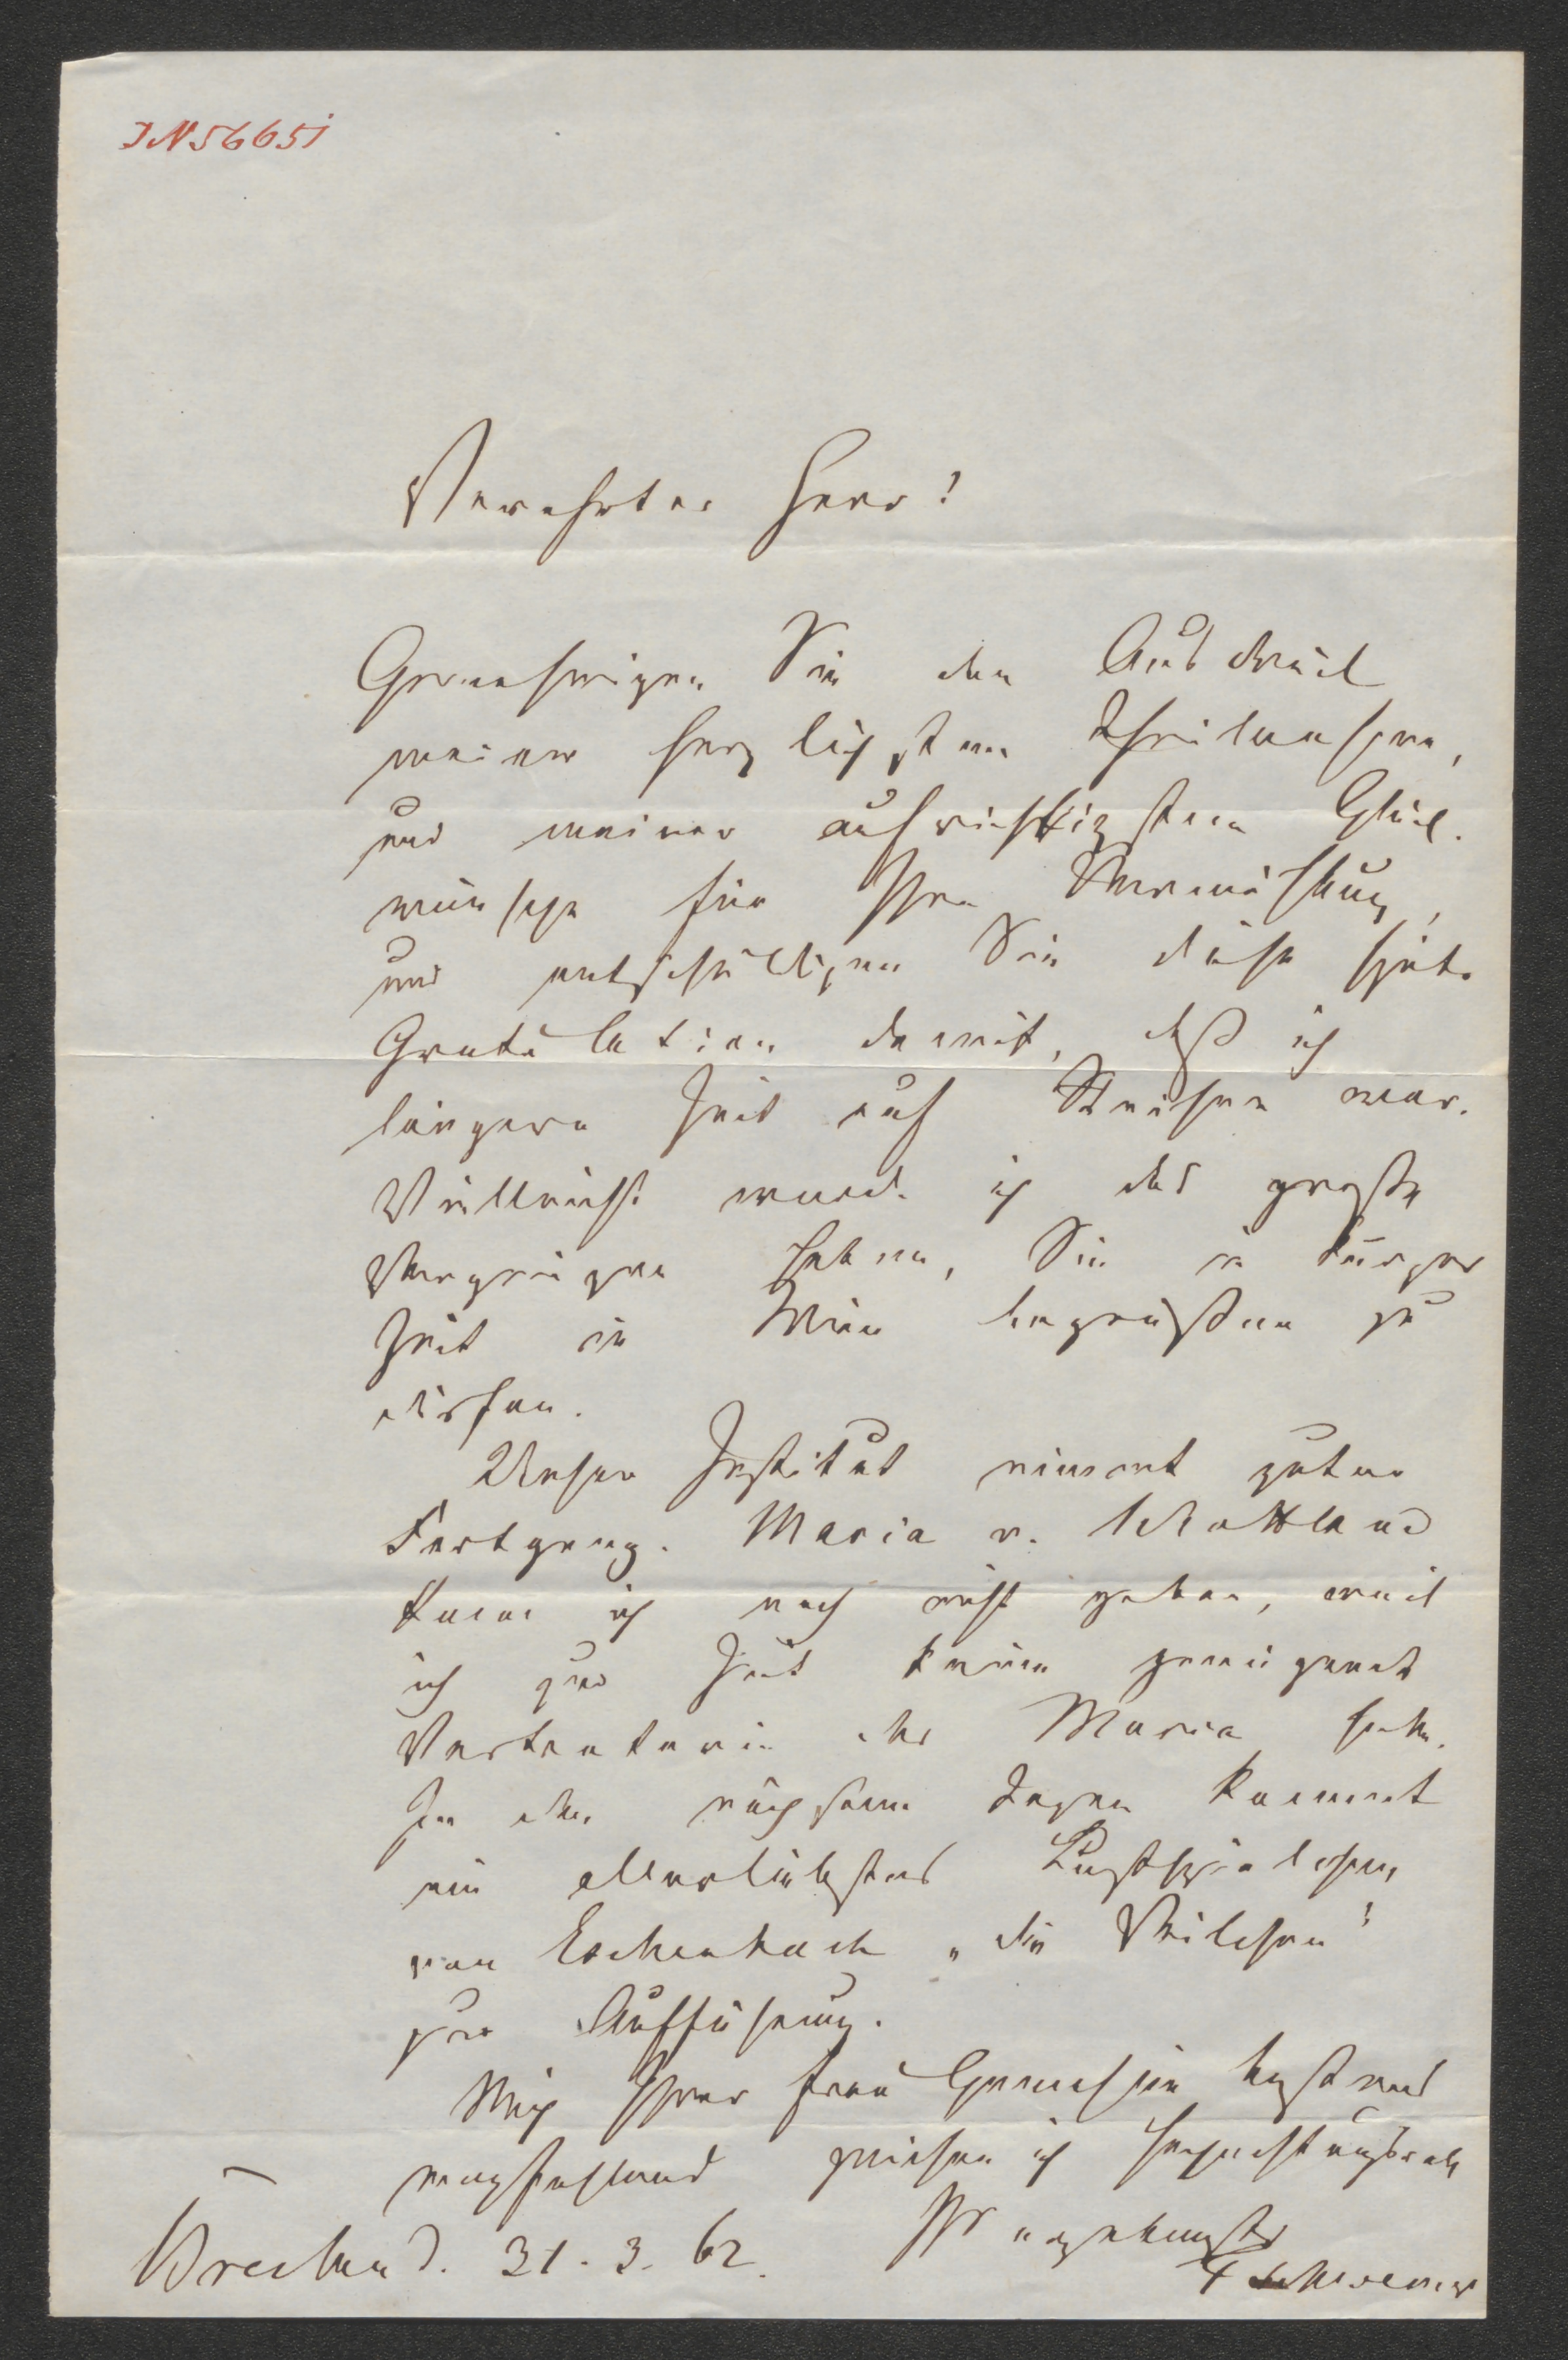 IN 56651
Verehrter Herr!
Genehmigen Sie den Ausdruck
meiner herzlichsten Theilnahme,
und meiner aufrichtigsten Glück-
wünsche für Ihre Vermählung,
und entschuldigen Sie diese späte
Gratulation damit, daß ich
längere Zeit auf Reisen war.
Vielleicht werde ich das große
Vergnügen haben, Sie in kurzer
Zeit in Wien begrüßen zu
dürfen.
Unser Institut nimmt guten
Fortgang. Maria v. Schottland
kann ich noch nicht geben, weil
ich zur Zeit keine genügende
Vertreterin der Maria habe.
In den nächsten Tagen kommt
ein allerliebstes Lustspielchen
von Eschenbach „die Veilchen"
zur Aufführung.
Mich Ihrer Frau Gemahlin bestens
empfehlend zeichne ich hochachtungsvoll
Ihr ergebenster
F Schwemer
Breslau d. 31. 3. 62.